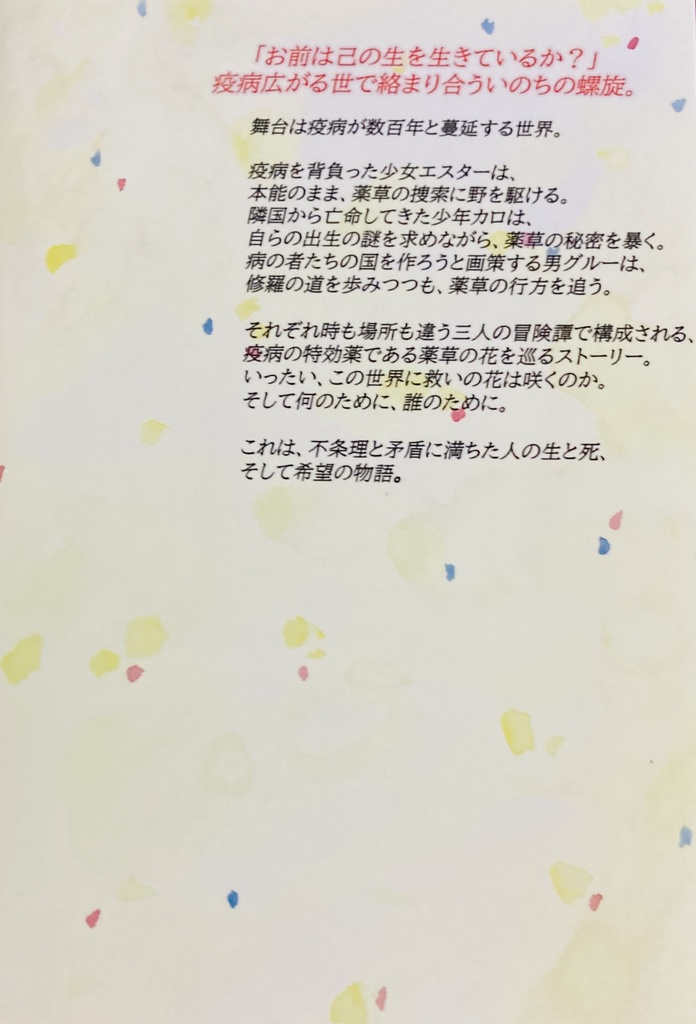 「お前は己の生を生きているか？」
疫病広がる世で絡まり合ういのちの螺旋。
舞台は疫病が数百年と蔓延する世界。
疫病を背負った少女エスターは、
本能のまま、薬草の捜索に野を駆ける。
隣国から亡命してきた少年カロは、
自らの出生の謎を求めながら、薬草の秘密を暴く。
病の者たちの国を作ろうと画策する男グルーは、
修羅の道を歩みつつも、薬草の行方を追う。
それぞれ時も場所も違う三人の冒険譚で構成される、
疫病の特効薬である薬草の花を巡るストーリー。
いったい、この世界に救いの花は咲くのか。
そして何のために、誰のために。
これは、不条理と矛盾に満ちた人の生と死、
そして希望の物語。